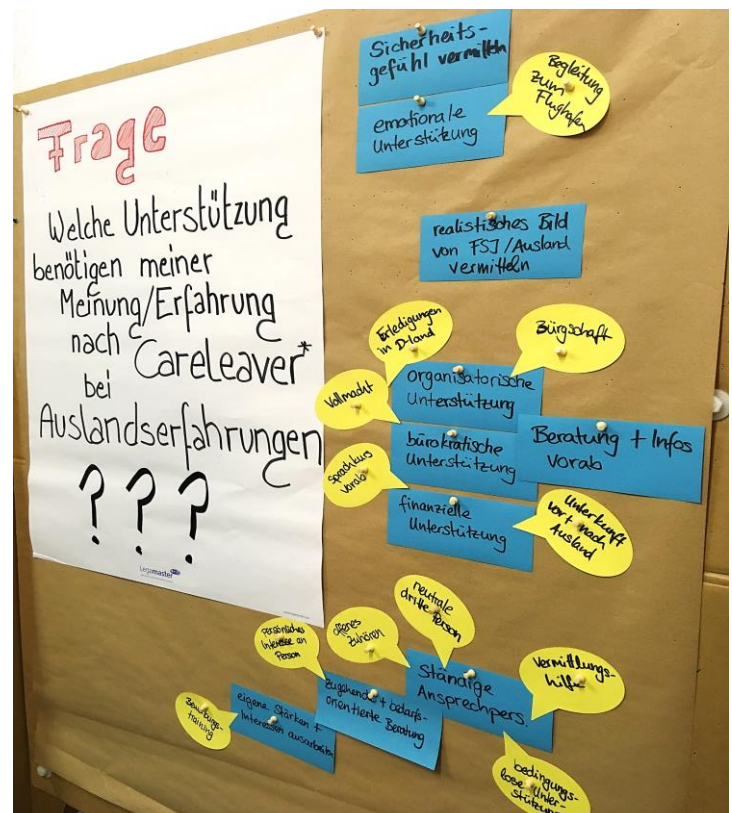 Frage
Welche Unterstützung
benötigen meiner
Meinung/Erfahrung
nach Careleaver*
bei
Auslandserfahrungen
? ? ?
Legamaster
Sicherheits-
gefühl vermitteln
emotionale
Unterstützung
Begleitung
zum
Flughafen
realistisches Bild
von FSJ/Ausland
vermitteln
Erledigungen
in D-land
Bürgschaft
Vollmacht
organisatorische
Unterstützung
Sprachkurs
vorab
bürokratische
Unterstützung
Beratung + Infos
vorab
finanzielle
Unterstützung
Unterkunft
vor + nach
Ausland
neutrale
dritte Person
offenes
Zuhören
persönliches
Interesse an
Person
Ständige
Ansprechpers.
Vermittlungs-
hilfe
Zugehende + bedarfs-
orientierte Beratung
eigene Stärken +
Interessen ausarbeiten
Bewerbungs-
training
bedingungs-
lose Unter-
stützung